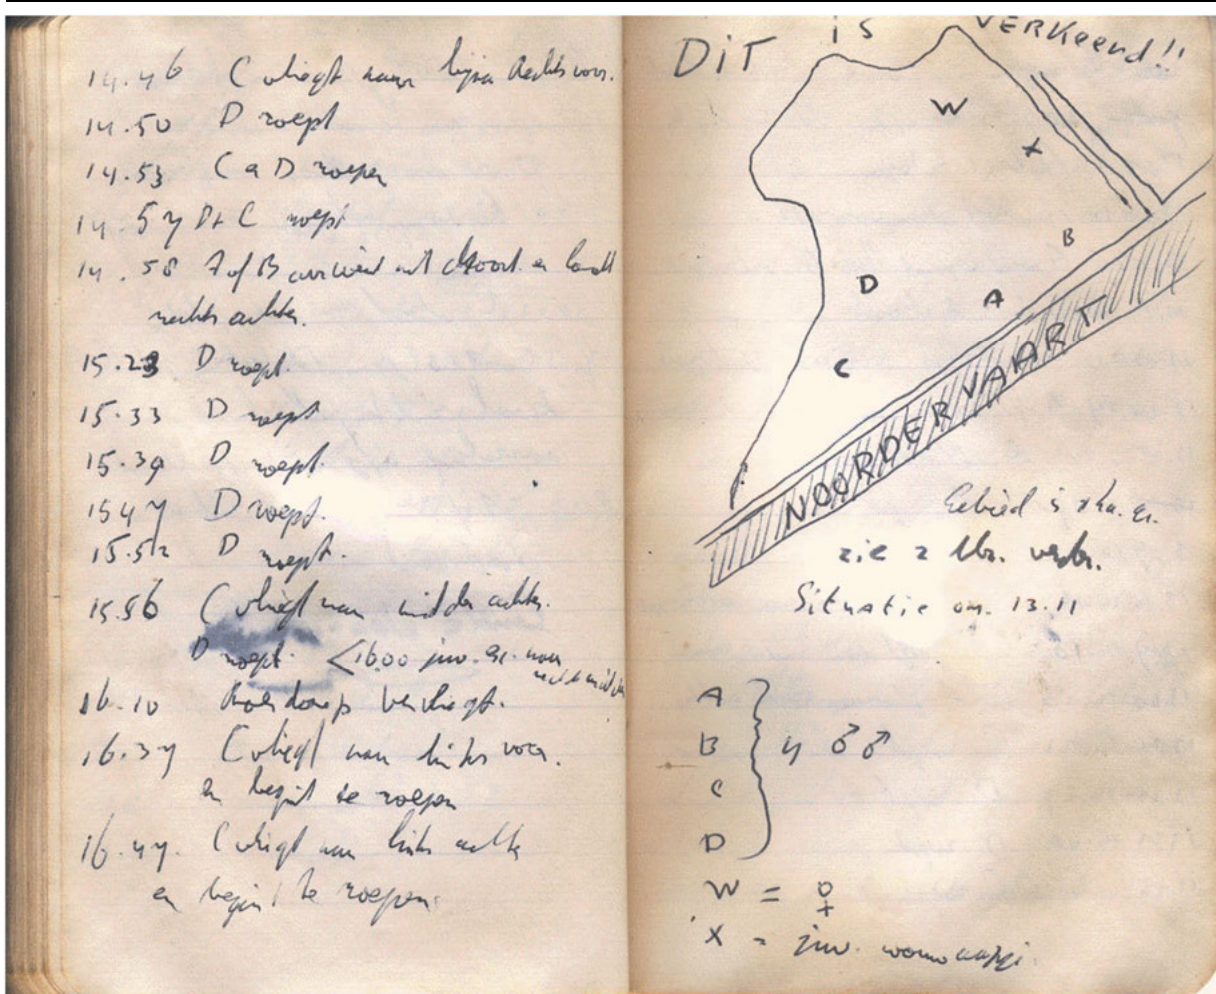 14.46 C vliegt naar links rechts voor.
14.50 D roept
14.53 C en D roepen
14.57 D + C roept
14.58 A of B arriveert uit en landt
rechts achter.
15.23 D roept.
15.33 D roept
15.39 D roept.
1547 D roept.
15.52 D roept.
15.56 C vliegt naar midden achter.
D roept. <16.00 juv. naar
16.10 Roerdomp vervliegt.
16.37 C vliegt naar links voor.
en begint te roepen
16.47. C vliegt naar links achter
en begint te roepen.
DiT is VERKEERD!!
W
X
B
D
A
C
NOORDERVAART
Gebied is
zie z
Situatie om. 13.11
A
B
C
D
4 ♂♂
W = ♀
X = juv.